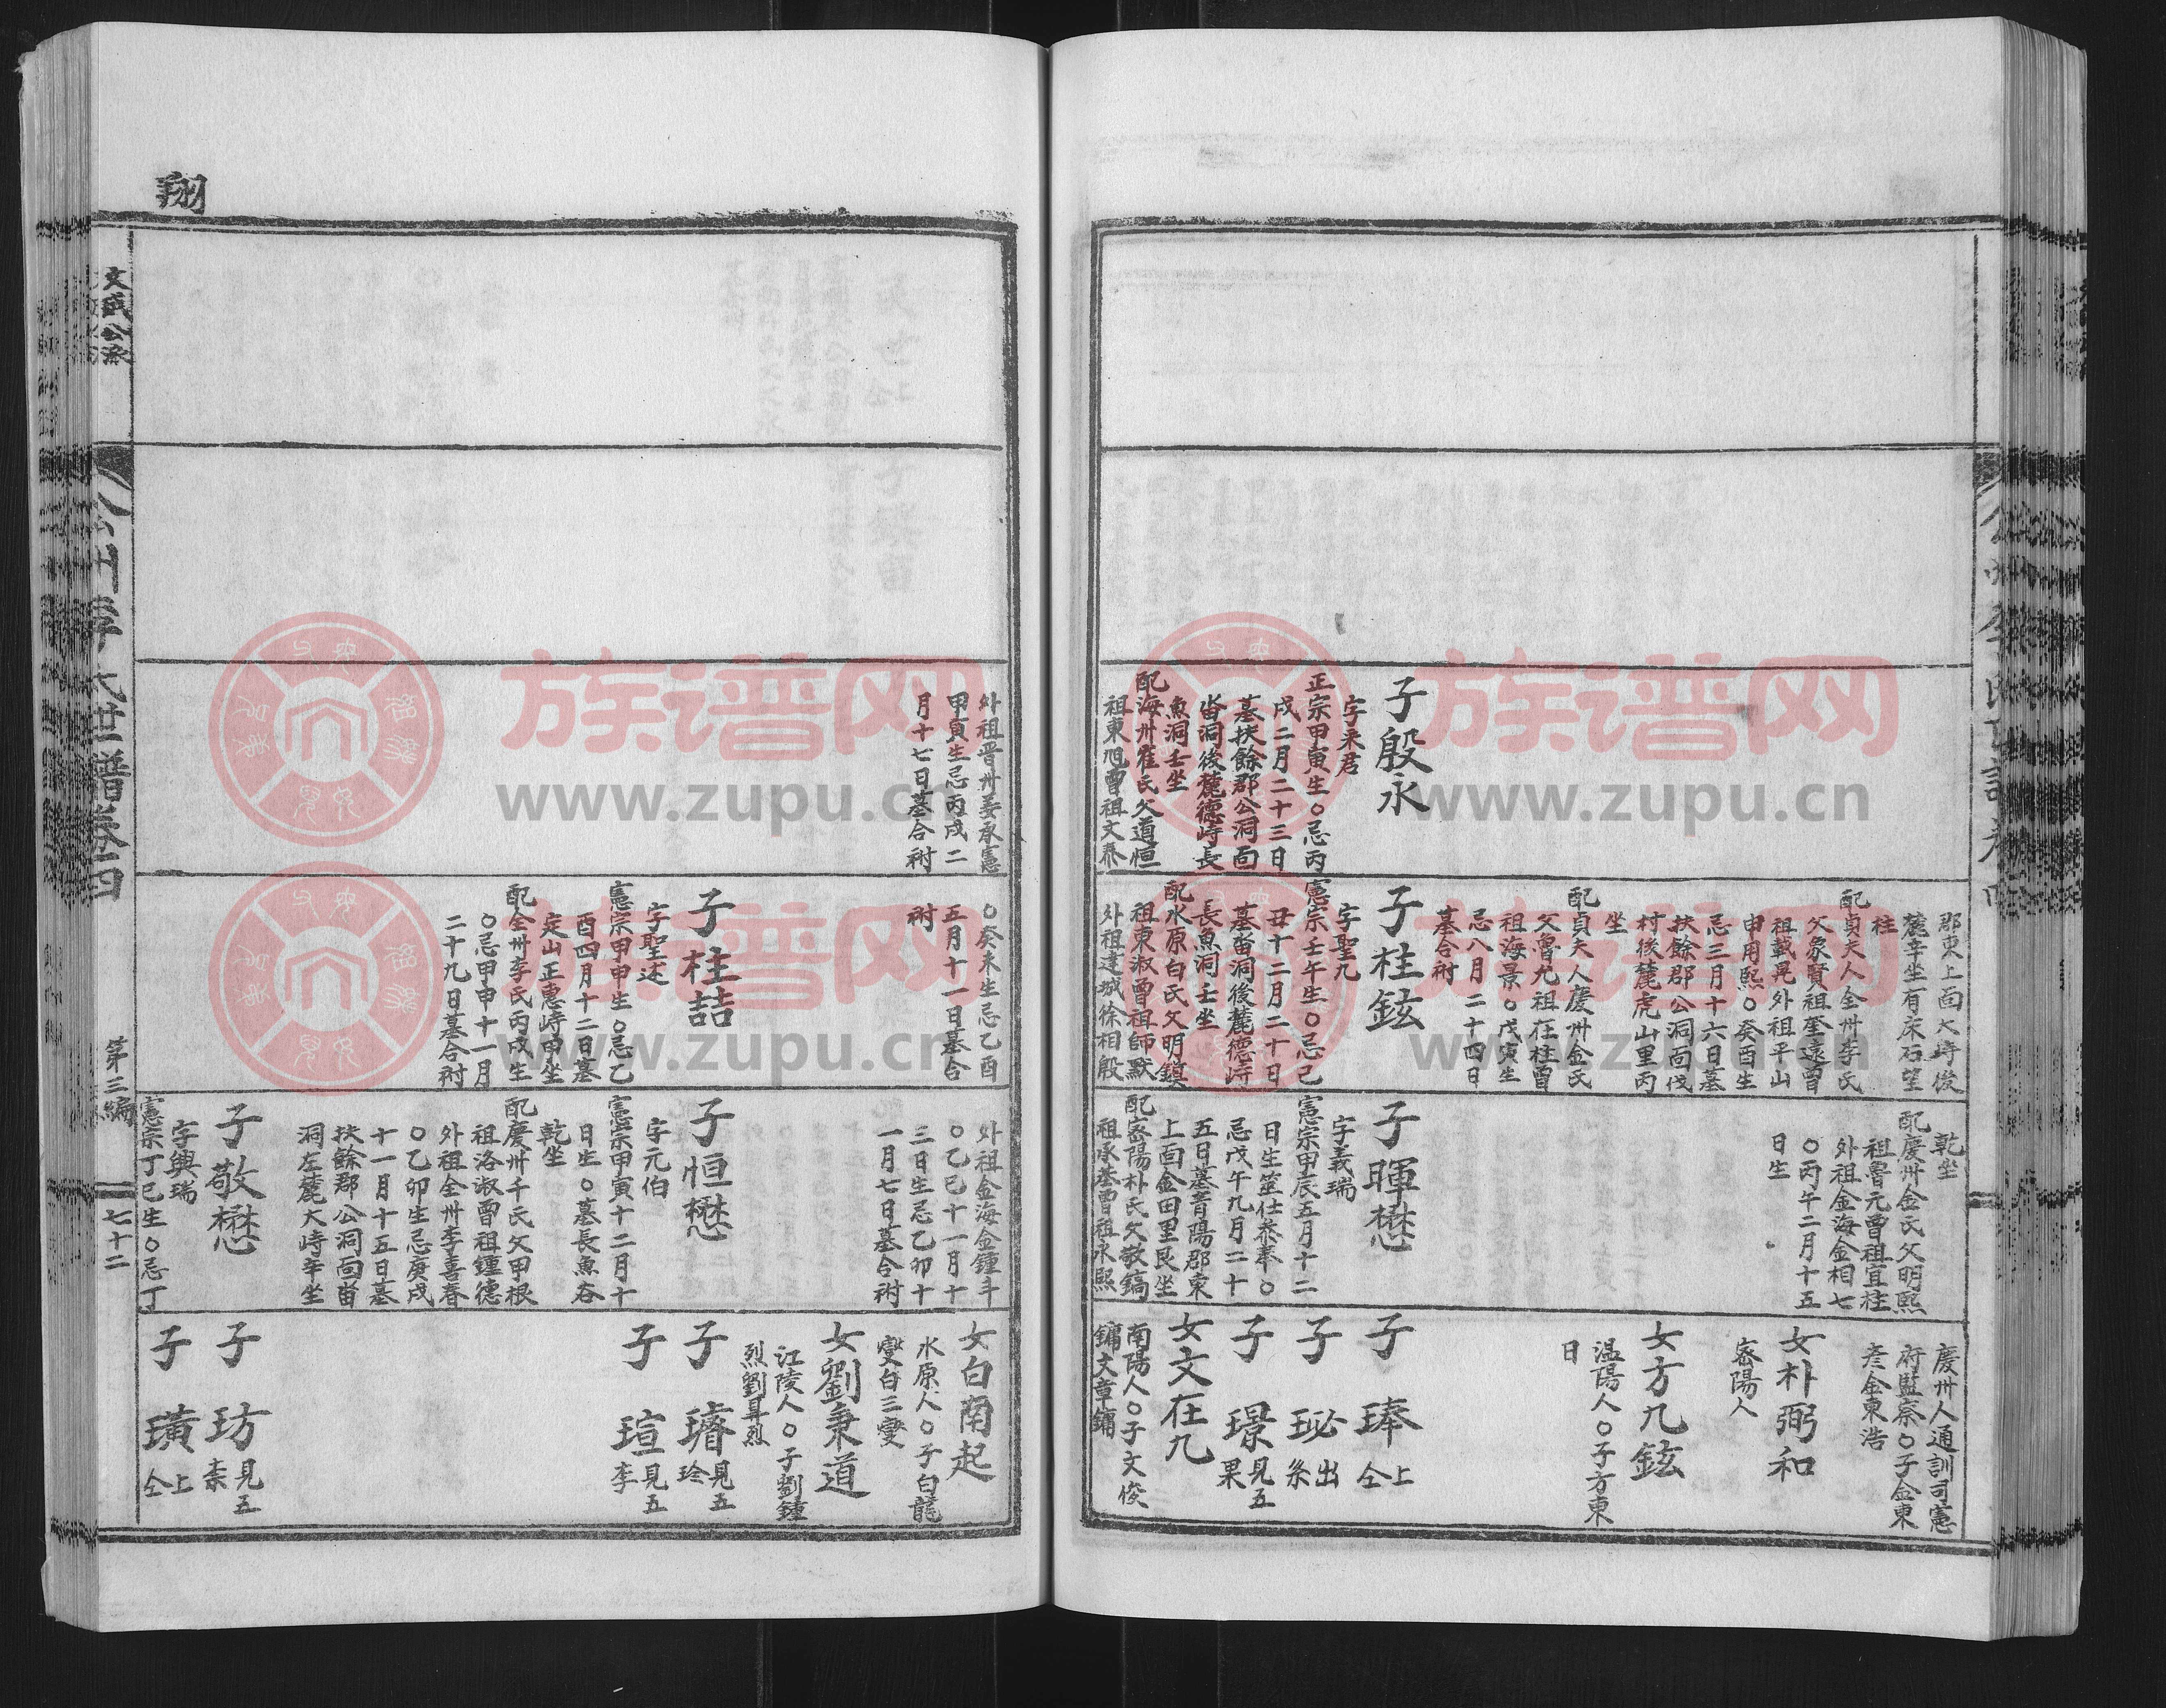 子殷永
字来君
正宗甲寅生○忌丙
戌二月二十三日
墓扶餘郡公洞面
畓洞後麓德峙長
魚洞壬坐
配海州崔氏父道恒
祖東旭曾祖文泰
郡東上面大峙後
麓辛坐有床石望
柱
配貞夫人全州李氏
父象賢祖奎遠曾
祖載晃外祖平山
申用熙○癸酉生
忌三月十六日墓
扶餘郡公洞面伐
村後麓虎山里丙
坐
配貞夫人慶州金氏
父魯允祖在柱曾
祖海景○戊寅生
忌八月二十四日
墓合祔
子桂鉉
字聖九
憲宗壬午生○忌己
丑十二月二十日
墓畓洞後麓德峙
長魚洞壬坐
配水原白氏父明鎮
祖東淑曾祖師默
外祖達城徐相殷
乾坐
配慶州金氏父明熙
祖魯元曾祖宜柱
外祖金海金相七
○丙午二月十五
日生
子暉懋
字義瑞
憲宗甲辰五月十二
日生筮仕恭奉○
忌戊午九月二十
五日墓青陽郡東
上面金田里艮坐
配密陽朴氏父敬鎬
祖承基曾祖永熙
慶州人通訓司憲
府監察○子金東
彦金東浩
女朴弼和
密陽人
女方九鉉
温陽人○子方東
日
子 琫 上仝
子 珌 出系
子 璟 見五果
女文在九
南陽人○子文俊
鏞文章鏞
翔
外祖晋州姜承憲
甲寅生忌丙戌二
月十七日墓合祔
○癸未生忌乙酉
五月十一日墓合
祔
子桂喆
字聖述
憲宗甲申生○忌乙
酉四月十二日墓
定山正惠峙甲坐
配全州李氏丙戌生
○忌甲申十一月
二十九日墓合祔
外祖金海金鍾斗
○乙巳十一月十
三日生忌乙卯十
一月七日墓合祔
子恒懋
字元伯
憲宗甲寅十二月十
日生○墓長魚谷
乾坐
配慶州千氏父甲根
祖洛淑曾祖鍾德
外祖全州李喜春
○乙卯生忌庚戌
十一月十五日墓
扶餘郡公洞面畓
洞左麓大峙辛坐
子敬懋
字興瑞
憲宗丁巳生○忌丁
女白南起
水原人○子白龍
燮白三燮
女劉秉道
江陵人○子劉鍾
烈劉昇烈
子 璿 見五珍
子 瑄 見五李
子 玏 見五柰
子 璜 上仝
文成公派
世譜卷四
第三編
七十二
族谱网
www.zupu.cn
族谱网
www.zupu.cn
族谱网
www.zupu.cn
族谱网
www.zupu.cn